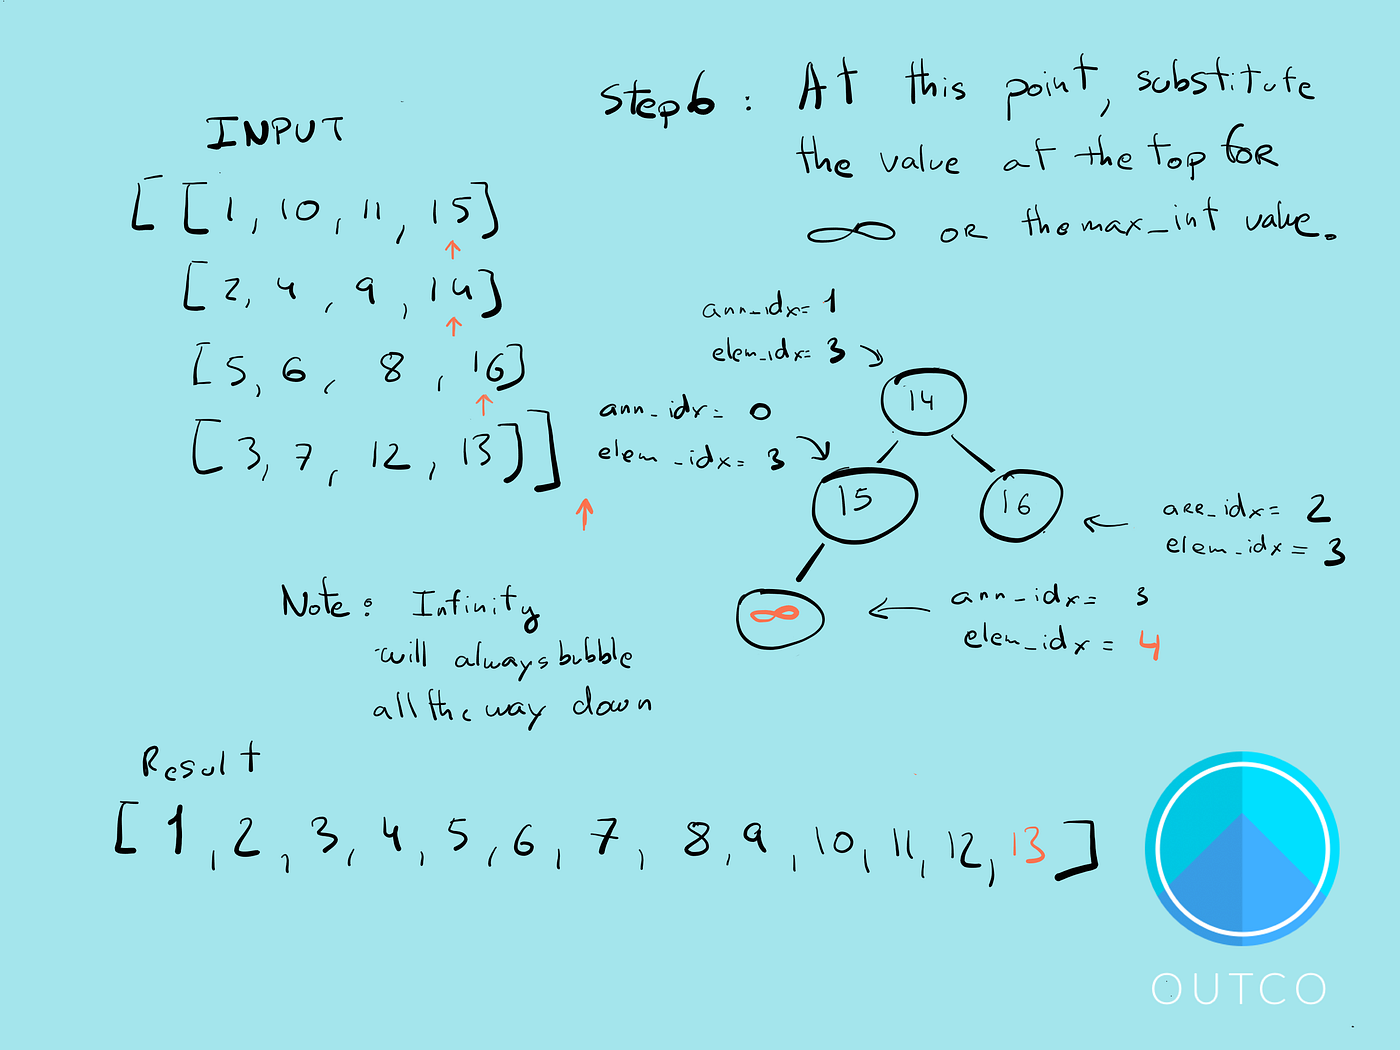 INPUT
[ [1, 10, 11, 15]
[2, 4, 9, 14]
[5, 6, 8, 16]
[3, 7, 12, 13]]
Step 6 : At this point, substitute
the value at the top for
∞ or the max_int value.
arr_idx= 1
elem_idx= 3
14
arr_idx= 0
elem_idx= 3
15
16
arr_idx= 2
elem_idx= 3
∞
arr_idx= 3
elem_idx= 4
Note: Infinity
will always bubble
all the way down
Result
[1, 2, 3, 4, 5, 6, 7, 8, 9, 10, 11, 12, 13]
OUTCO